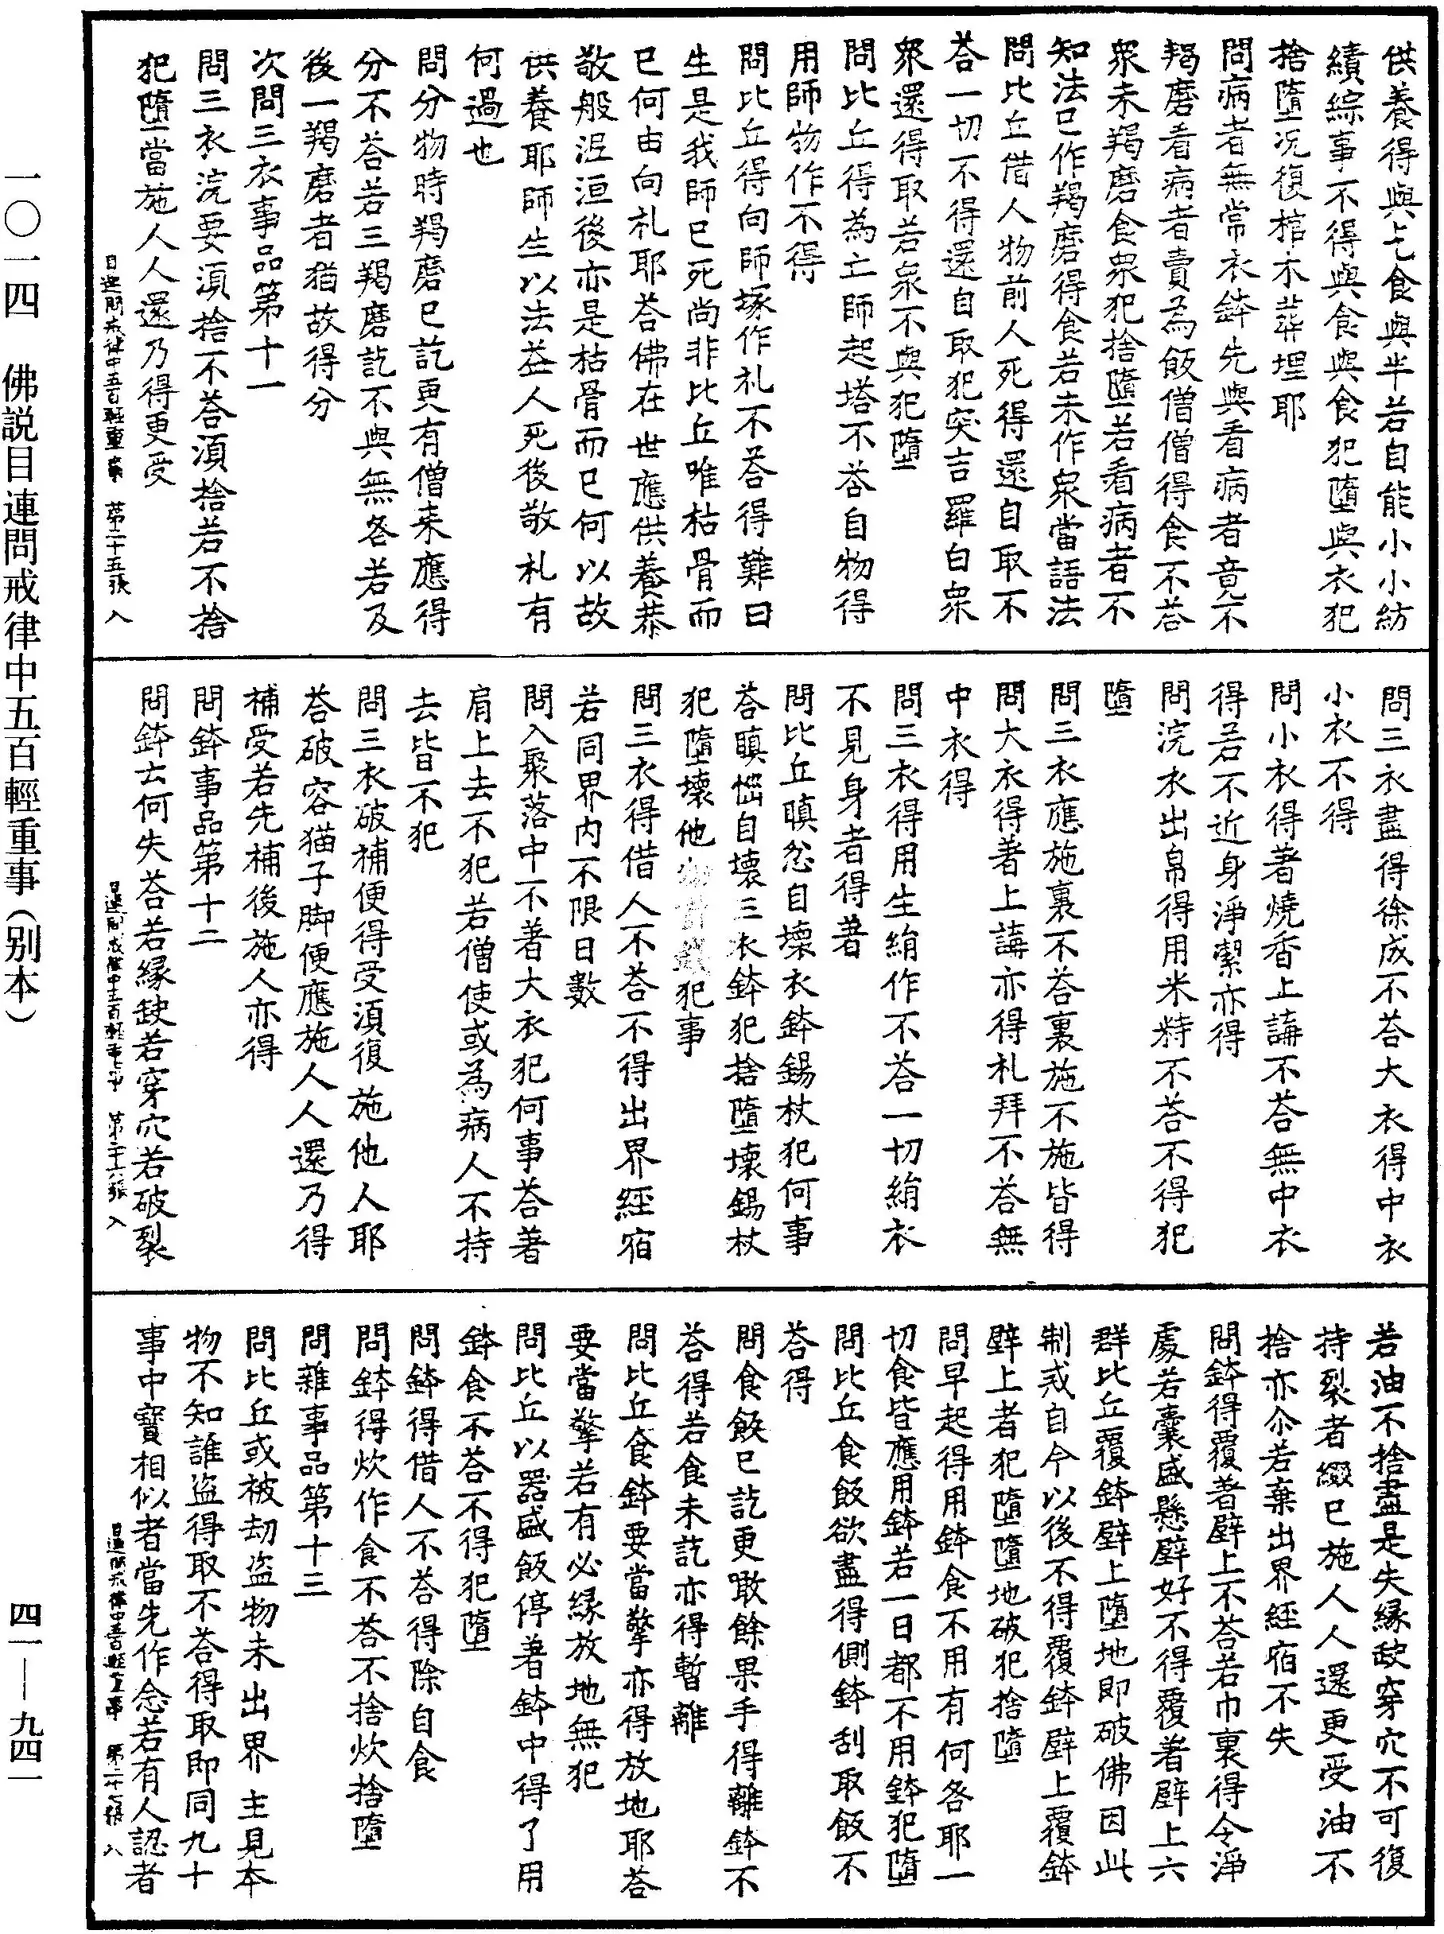 一〇一四　佛説目連問戒律中五百輕重事（别本）
四一—九四一
供養得與乞食與半若自能小小紡
績綜事不得與食與食犯墮與衣犯
捨墮况復棺木葬埋耶
問病者無常衣鉢先與看病者竟不
羯磨看病者賣為飯僧僧得食不荅
衆未羯磨食衆犯捨墮若看病者不
知法已作羯磨得食若未作衆當語法
問比丘借人物前人死得還自取不
荅一切不得還自取犯突吉羅白衆
衆還得取若衆不與犯墮
問比丘得為亡師起塔不荅自物得
用師物作不得
問比丘得向師塚作礼不荅得難曰
生是我師已死尚非比丘唯枯骨而
已何由向礼耶荅佛在世應供養恭
敬般涅洹後亦是枯骨而已何以故
供養耶師生以法益人死後敬礼有
何過也
問分物時羯磨已訖更有僧来應得
分不荅若三羯磨訖不與無咎若及
後一羯磨者猶故得分
次問三衣事品第十一
問三衣浣要湏捨不荅湏捨若不捨
犯墮當施人人還乃得更受
目連問戒律中五百輕重事　第二十五張　入
問三衣盡得徐成不荅大衣得中衣
小衣不得
問小衣得著燒香上講不荅無中衣
得若不近身淨潔亦得
問浣衣出帛得用米粉不荅不得犯
墮
問三衣應施裏不荅裏施不施皆得
問大衣得著上講亦得礼拜不荅無
中衣得
問三衣得用生絹作不荅一切絹衣
不見身者得著
問比丘瞋忿自壞衣鉢錫杖犯何事
荅瞋惱自壞三衣鉢犯捨墮壞錫杖
犯墮壞他犯事
問三衣得借人不荅不得出界經宿
若同界内不限日數
問入聚落中不著大衣犯何事荅著
肩上去不犯若僧使或為病人不持
去皆不犯
問三衣破補便得受湏復施他人耶
荅破容猫子脚便應施人人還乃得
補受若先補後施人亦得
問鉢事品第十二
問鉢云何失荅若緣缺若穿穴若破裂
目連問戒律中五百輕重事　第二十六張　入
若油不捨盡是失緣缺穿穴不可復
持裂者綴已施人人還更受油不
捨亦尒若棄出界經宿不失
問鉢得覆著壁上不荅若巾裏得令淨
處若囊盛懸壁好不得覆著壁上六
群比丘覆鉢壁上墮地即破佛因此
制戒自今以後不得覆鉢壁上覆鉢
壁上者犯墮墮地破犯捨墮
問早起得用鉢食不用有何咎耶一
切食皆應用鉢若一日都不用鉢犯墮
問比丘食飯欲盡得側鉢刮取飯不
荅得
問食飯已訖更噉餘果手得離鉢不
荅得若食未訖亦得暫離
問比丘食鉢要當擎亦得放地耶荅
要當擎若有必緣放地無犯
問比丘以器盛飯停著鉢中得了用
鉢食不荅不得犯墮
問鉢得借人不荅得除自食
問鉢得炊作食不荅不捨炊捨墮
問雜事品第十三
問比丘或被劫盜物未出界主見本
物不知誰盜得取不荅得取即同九十
事中寶相似者當先作念若有人認者
目連問戒律中五百輕重事　第二十七張　入